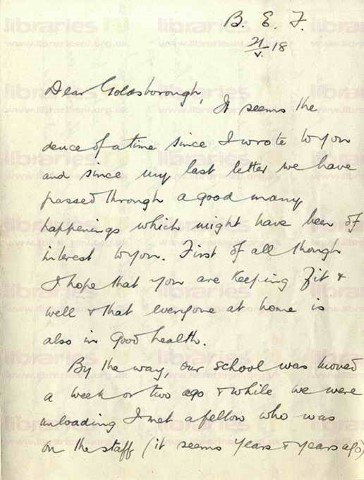 B. E. F.
21/V. 18
Dear Goldsborough,
It seems the
deuce of a time since I wrote to you
and since my last letter we have
passed through a good many
happenings which might have been of
interest to you. First of all though
I hope that you are keeping fit &
well & that everyone at home is
also in good health.
By the way, our school was moved
a week or two ago & while we were
unloading I met a fellow who was
on the staff (it seems years & years ago)